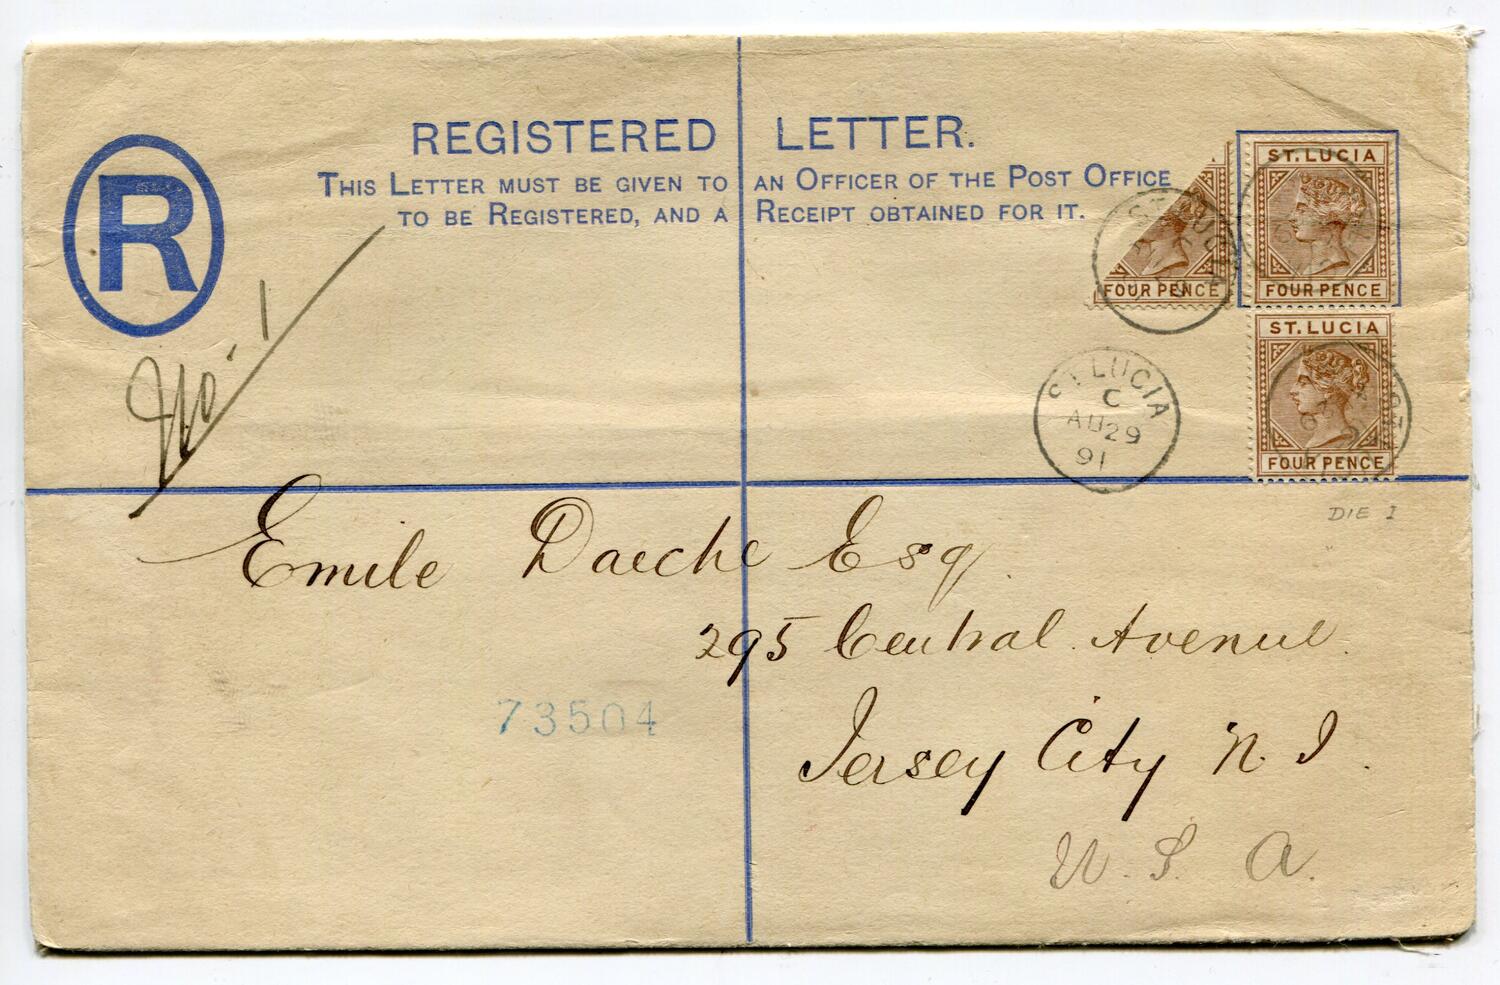 REGISTERED LETTER.
THIS LETTER MUST BE GIVEN TO AN OFFICER OF THE POST OFFICE
TO BE REGISTERED, AND A RECEIPT OBTAINED FOR IT.
R
No. 1
FOUR PENCE
ST. LUCIA
FOUR PENCE
ST. LUCIA
FOUR PENCE
ST LUCIA
C
AU 29
91
DIE I
Emile Daeche Esq.
295 Central Avenue.
73504
Jersey City N. J.
U. S. A.